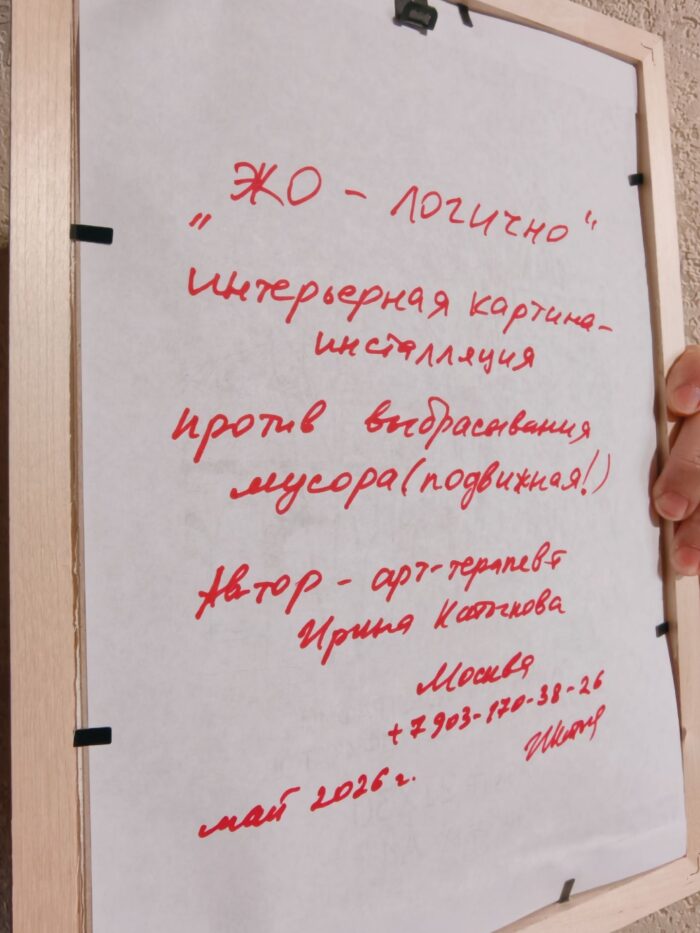 „ЭКО - логично"
интерьерная картина-
инсталляция
против выбрасывания
мусора (подвижная!)
Автор - арт-терапевт
Ирина
Москва
+7 903-170-38-26
май 2026 г.